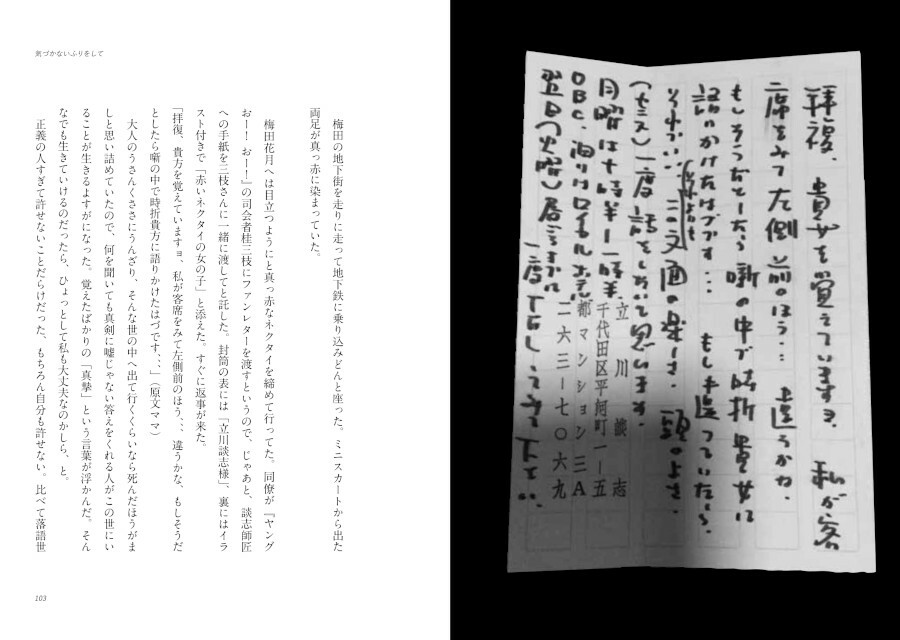 気づかないふりをして
梅田の地下街を走りに走って地下鉄に乗り込みどんと座った。ミニスカートから出た
両足が真っ赤に染まっていた。
梅田花月へは目立つようにと真っ赤なネクタイを締めて行ってた。同僚が『ヤング
おー！おー！』の司会者桂三枝にファンレターを渡すというので、じゃあと、談志師匠
への手紙を三枝さんに一緒に渡してと託した。封筒の表には「立川談志様」、裏にはイラ
スト付きで「赤いネクタイの女の子」と添えた。すぐに返事が来た。
「拝復、貴方を覚えていますョ、私が客席をみて左側前のほう、、、違うかな、もしそうだ
としたら噺の中で時折貴方に語りかけたはづです、、、」（原文ママ）
大人のうさんくささにうんざり、そんな世の中へ出て行くくらいなら死んだほうがま
しと思い詰めていたので、何を聞いても真剣に嘘じゃない答えをくれる人がこの世にい
ることが生きるよすがになった。覚えたばかりの「真摯」という言葉が浮かんだ。そん
なでも生きていけるのだったら、ひょっとして私も大丈夫なのかしら、と。
正義の人すぎて許せないことだらけだった、もちろん自分も許せない。比べて落語世
103
拝復、貴女を覚えていますヨ、私が客
席をみて左側前のほう… 違うかな、
もしそうだとしたら噺の中で時折貴女に
語りかけたはづです… もし間違っていたら、
それでいい この文通の楽しさ、頭のよさ、
一度話をしたいと思います。
月曜は十時半―一時半、
OBC、泊りはロイヤルホテル
翌日（火曜）昼までに
一度TELしてみて下さい
立川談志
千代田区平河町一ー五
都マンション三A
二六三ー七〇六九